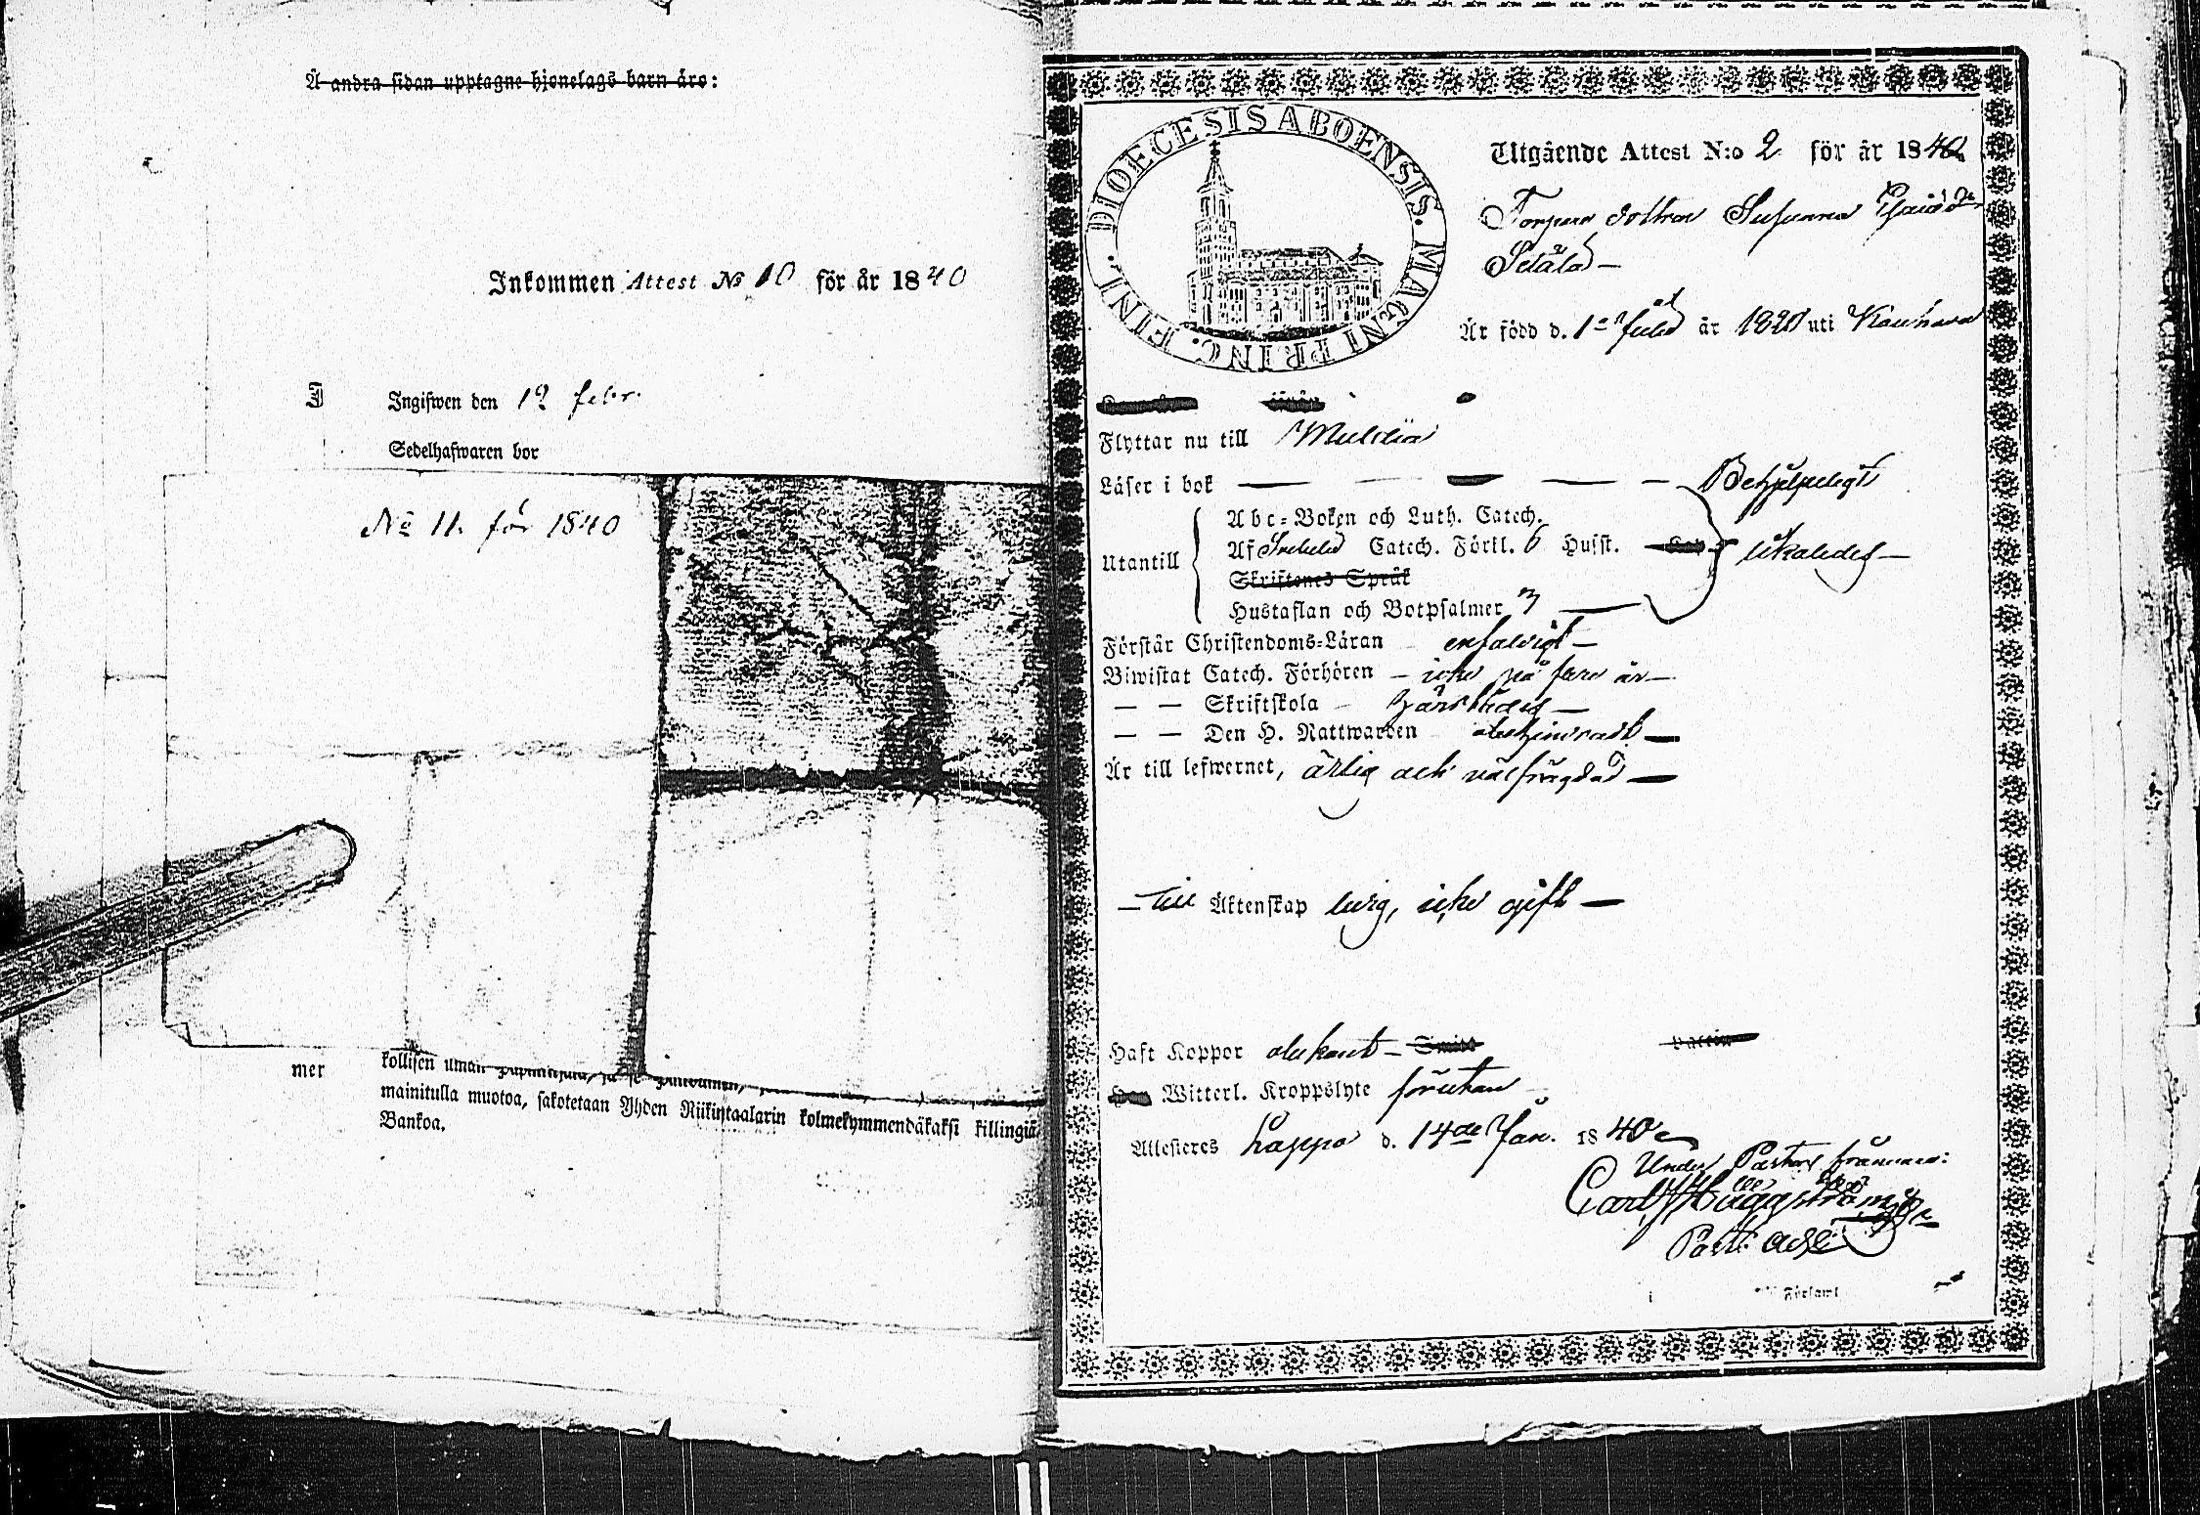 Å andra sidan upptagne hjonelags barn äro:
Inkommen Attest No 10 för år 1840
Ingifwen den 19 febr.
Sedelhafwaren bor
No 11. för 1840
mer
kollisen
mainitulla muotoa, sakotetaan Yhden Riikintaalarin kolmekymmendäkaksi killingiä
Bankoa.
DIOECESIS ABOENSIS. MAGNI PRINC. FINL.
Utgående Attest N:o 2 för år 1840
Susanna
Är född d. 1 år uti Kauhava
Flyttar nu till Multia
Läser i bok — — — — — Behjelpeligt
Utantill
Abc-Boken och Luth. Catech.
Af Catech. Förkl. Husst. likaledes —
Skriftenes Språk
Hustaflan och Botpsalmer
Förstår Christendoms-Läran enfaldigt —
Biwistat Catech. Förhören — icke på flere år —
— — Skriftskola — härstädes —
— — Den H. Nattwarden obehindradt —
Är till lefwernet, ärlig och välfrägdad —
— till Äktenskap ledig, icke gift —
Haft Koppor obekant —
Witterl. Kroppslyte förutan
Attesteres Lappo d. 14de Jan. 1840
Under Pastors frånvaro:
Carl Häggström
Past: Adj:
Församl